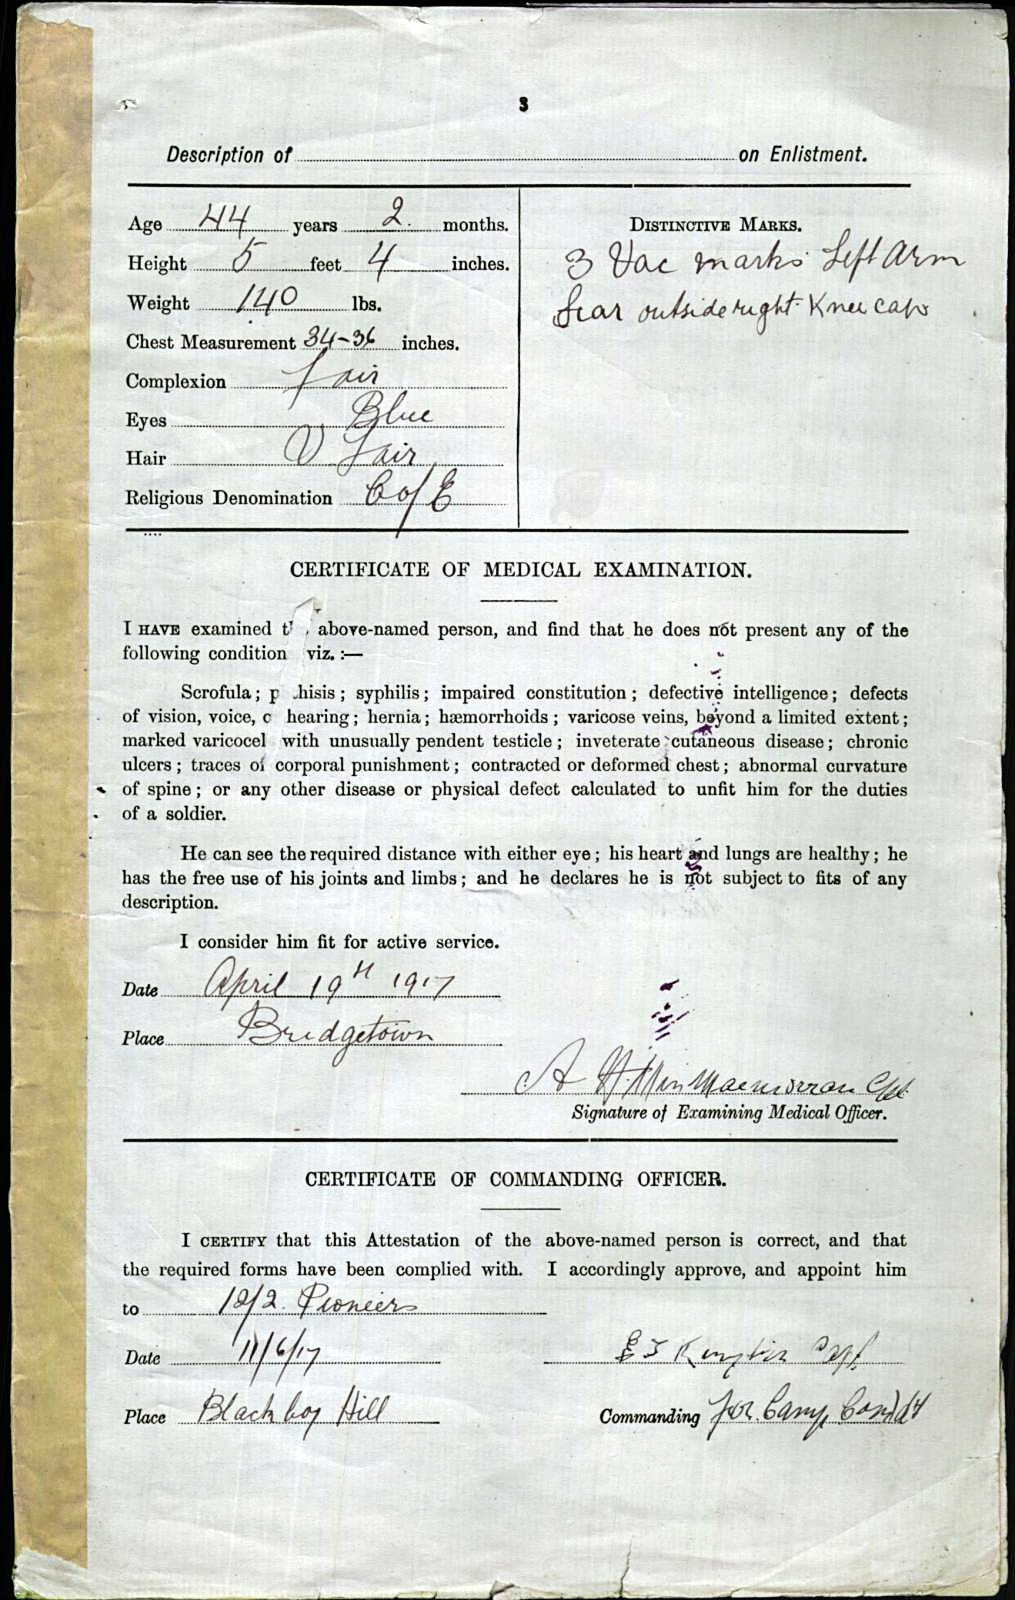 3
Description of on Enlistment.
Age 44 years 2 months.
Height 5 feet 4 inches.
Weight 140 lbs.
Chest Measurement 34-36 inches.
Complexion Fair
Eyes Blue
Hair V Fair
Religious Denomination C of E
DISTINCTIVE MARKS.
3 Vac marks Left Arm
Scar outside right Knee cap
CERTIFICATE OF MEDICAL EXAMINATION.
I HAVE examined above-named person, and find that he does not present any of the
following condition viz. :—
Scrofula; syphilis; impaired constitution; defective intelligence; defects
of vision, voice, hearing; hernia; hæmorrhoids; varicose veins, beyond a limited extent;
marked varicocel with unusually pendent testicle; inveterate cutaneous disease; chronic
ulcers; traces of corporal punishment; contracted or deformed chest; abnormal curvature
of spine; or any other disease or physical defect calculated to unfit him for the duties
of a soldier.
He can see the required distance with either eye; his heart and lungs are healthy; he
has the free use of his joints and limbs; and he declares he is not subject to fits of any
description.
I consider him fit for active service.
Date April 19th 1917
Place Bridgetown
A Capt
Signature of Examining Medical Officer.
CERTIFICATE OF COMMANDING OFFICER.
I CERTIFY that this Attestation of the above-named person is correct, and that
the required forms have been complied with. I accordingly approve, and appoint him
to 12/2. Pioneers
Date 11/6/17
Capt
Place Blackboy Hill
Commanding for Camp Comdt